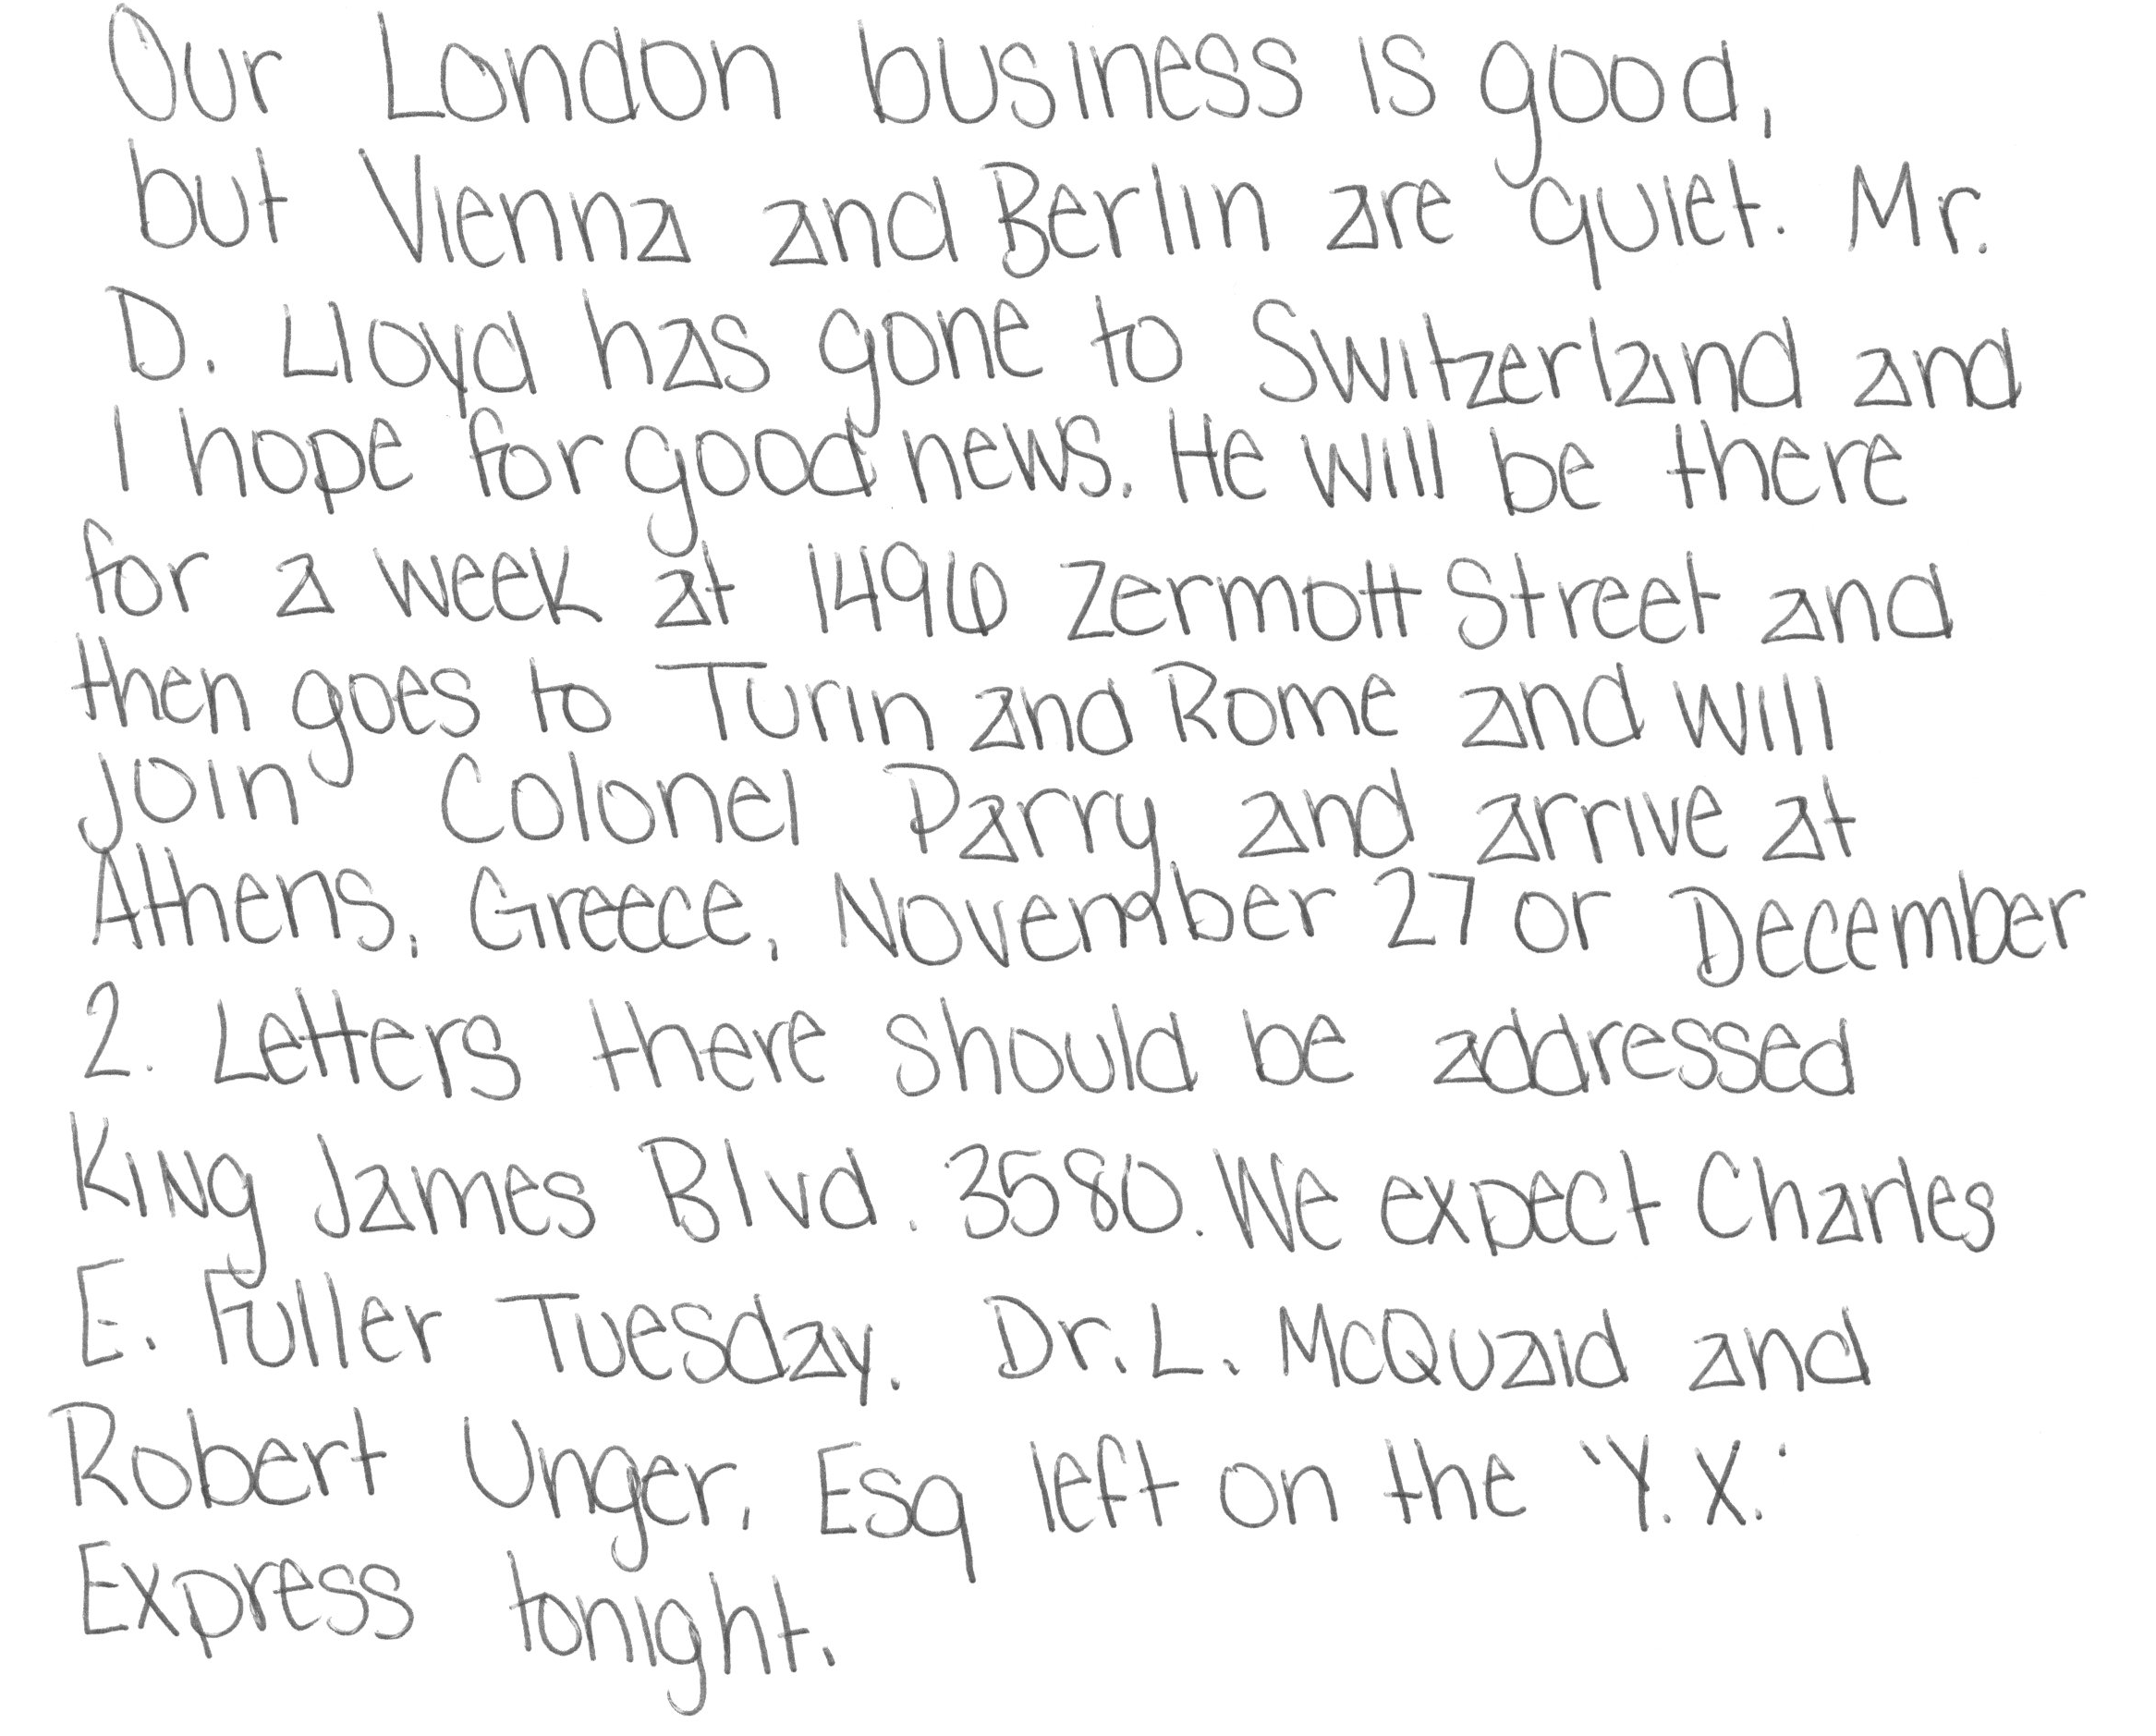 Our London business is good,
but Vienna and Berlin are quiet. Mr.
D. Lloyd has gone to Switzerland and
I hope for good news. He will be there
for a week at 1496 Zermott Street and
then goes to Turin and Rome and will
join Colonel Parry and arrive at
Athens, Greece, November 27 or December
2. Letters there should be addressed
King James Blvd. 3580. We expect Charles
E. Fuller Tuesday. Dr. L. McQuaid and
Robert Unger, Esq left on the 'Y.X.'
Express tonight.